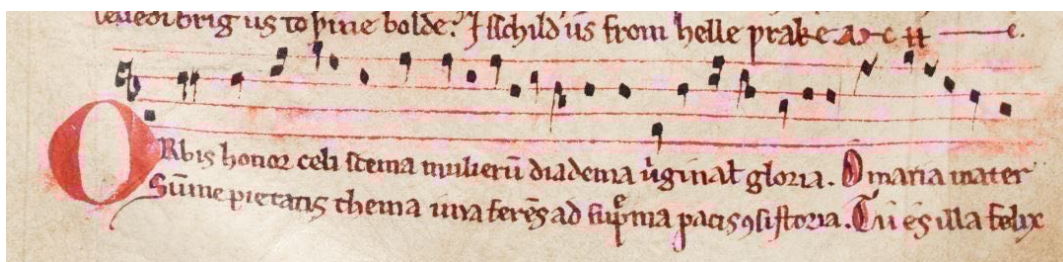 leuedi brig us to þine bolde. ⁊ schild ūs from helle prake A M E N.
ORbis honor celi scema mulierū diadema ũginal gloria. O maria mater
Sūme pietatis thema iura ferēs ad sup̄ma pacis ꝯsistoria. Tū es illa felix